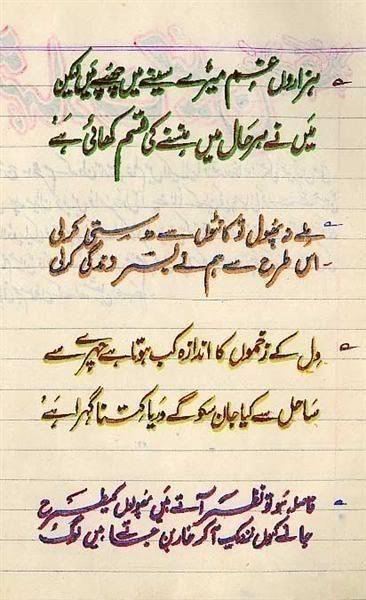 ہزاروں غم میرے سینے میں چھپے ہیں لیکن
میں نے ہر حال میں ہنسنے کی قسم کھائی ہے
ملے نہ پھول تو کانٹوں سے دوستی کرلی
اس طرح سے ہم نے بسر زندگی کرلی
دل کے زخموں کا اندازہ کب ہوتا ہے چہرے سے
ساحل سے کیا جان سکو گے دریا کتنا گہرا ہے
فاصلہ ہو تو نظر آتے ہیں پھولوں کیطرح
جانے کیوں نزدیک آ کر خار بن جاتے ہیں لوگ